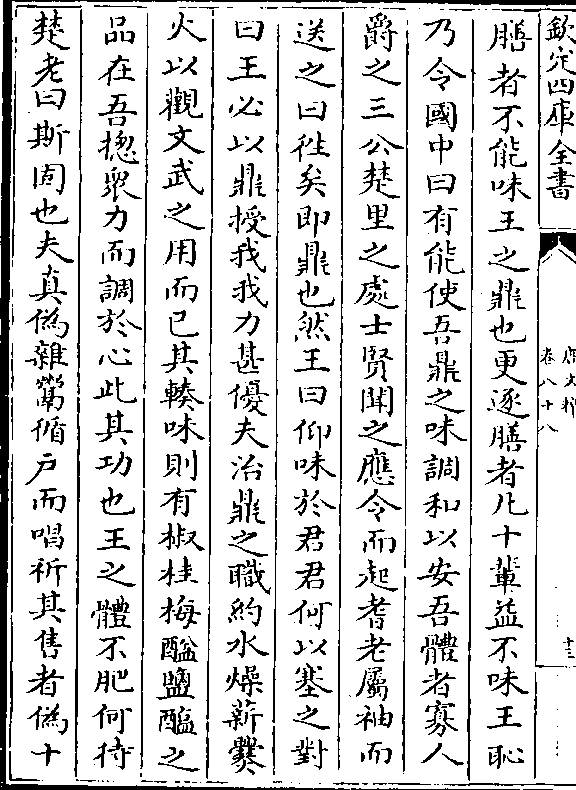 欽定四庫全書
唐文粹
卷八十八
膳者不能味王之鼎也更逐膳者凡十輩益不味王恥
乃令國中曰有能使吾鼎之味調和以安吾體者寡人
爵之三公楚里之處士賢聞之應令而起耆老屬袖而
送之曰往矣即鼎也然王曰仰味於君君何以塞之對
曰王必以鼎授我我力甚優夫治鼎之職約水燥薪爨
火以觀文武之用而已其輳味則有椒桂梅醯鹽醢之
品在吾揔衆力而調於心此其功也王之體不肥何待
楚老曰斯固也夫真僞雜鬻循戶而唱祈其售者僞十